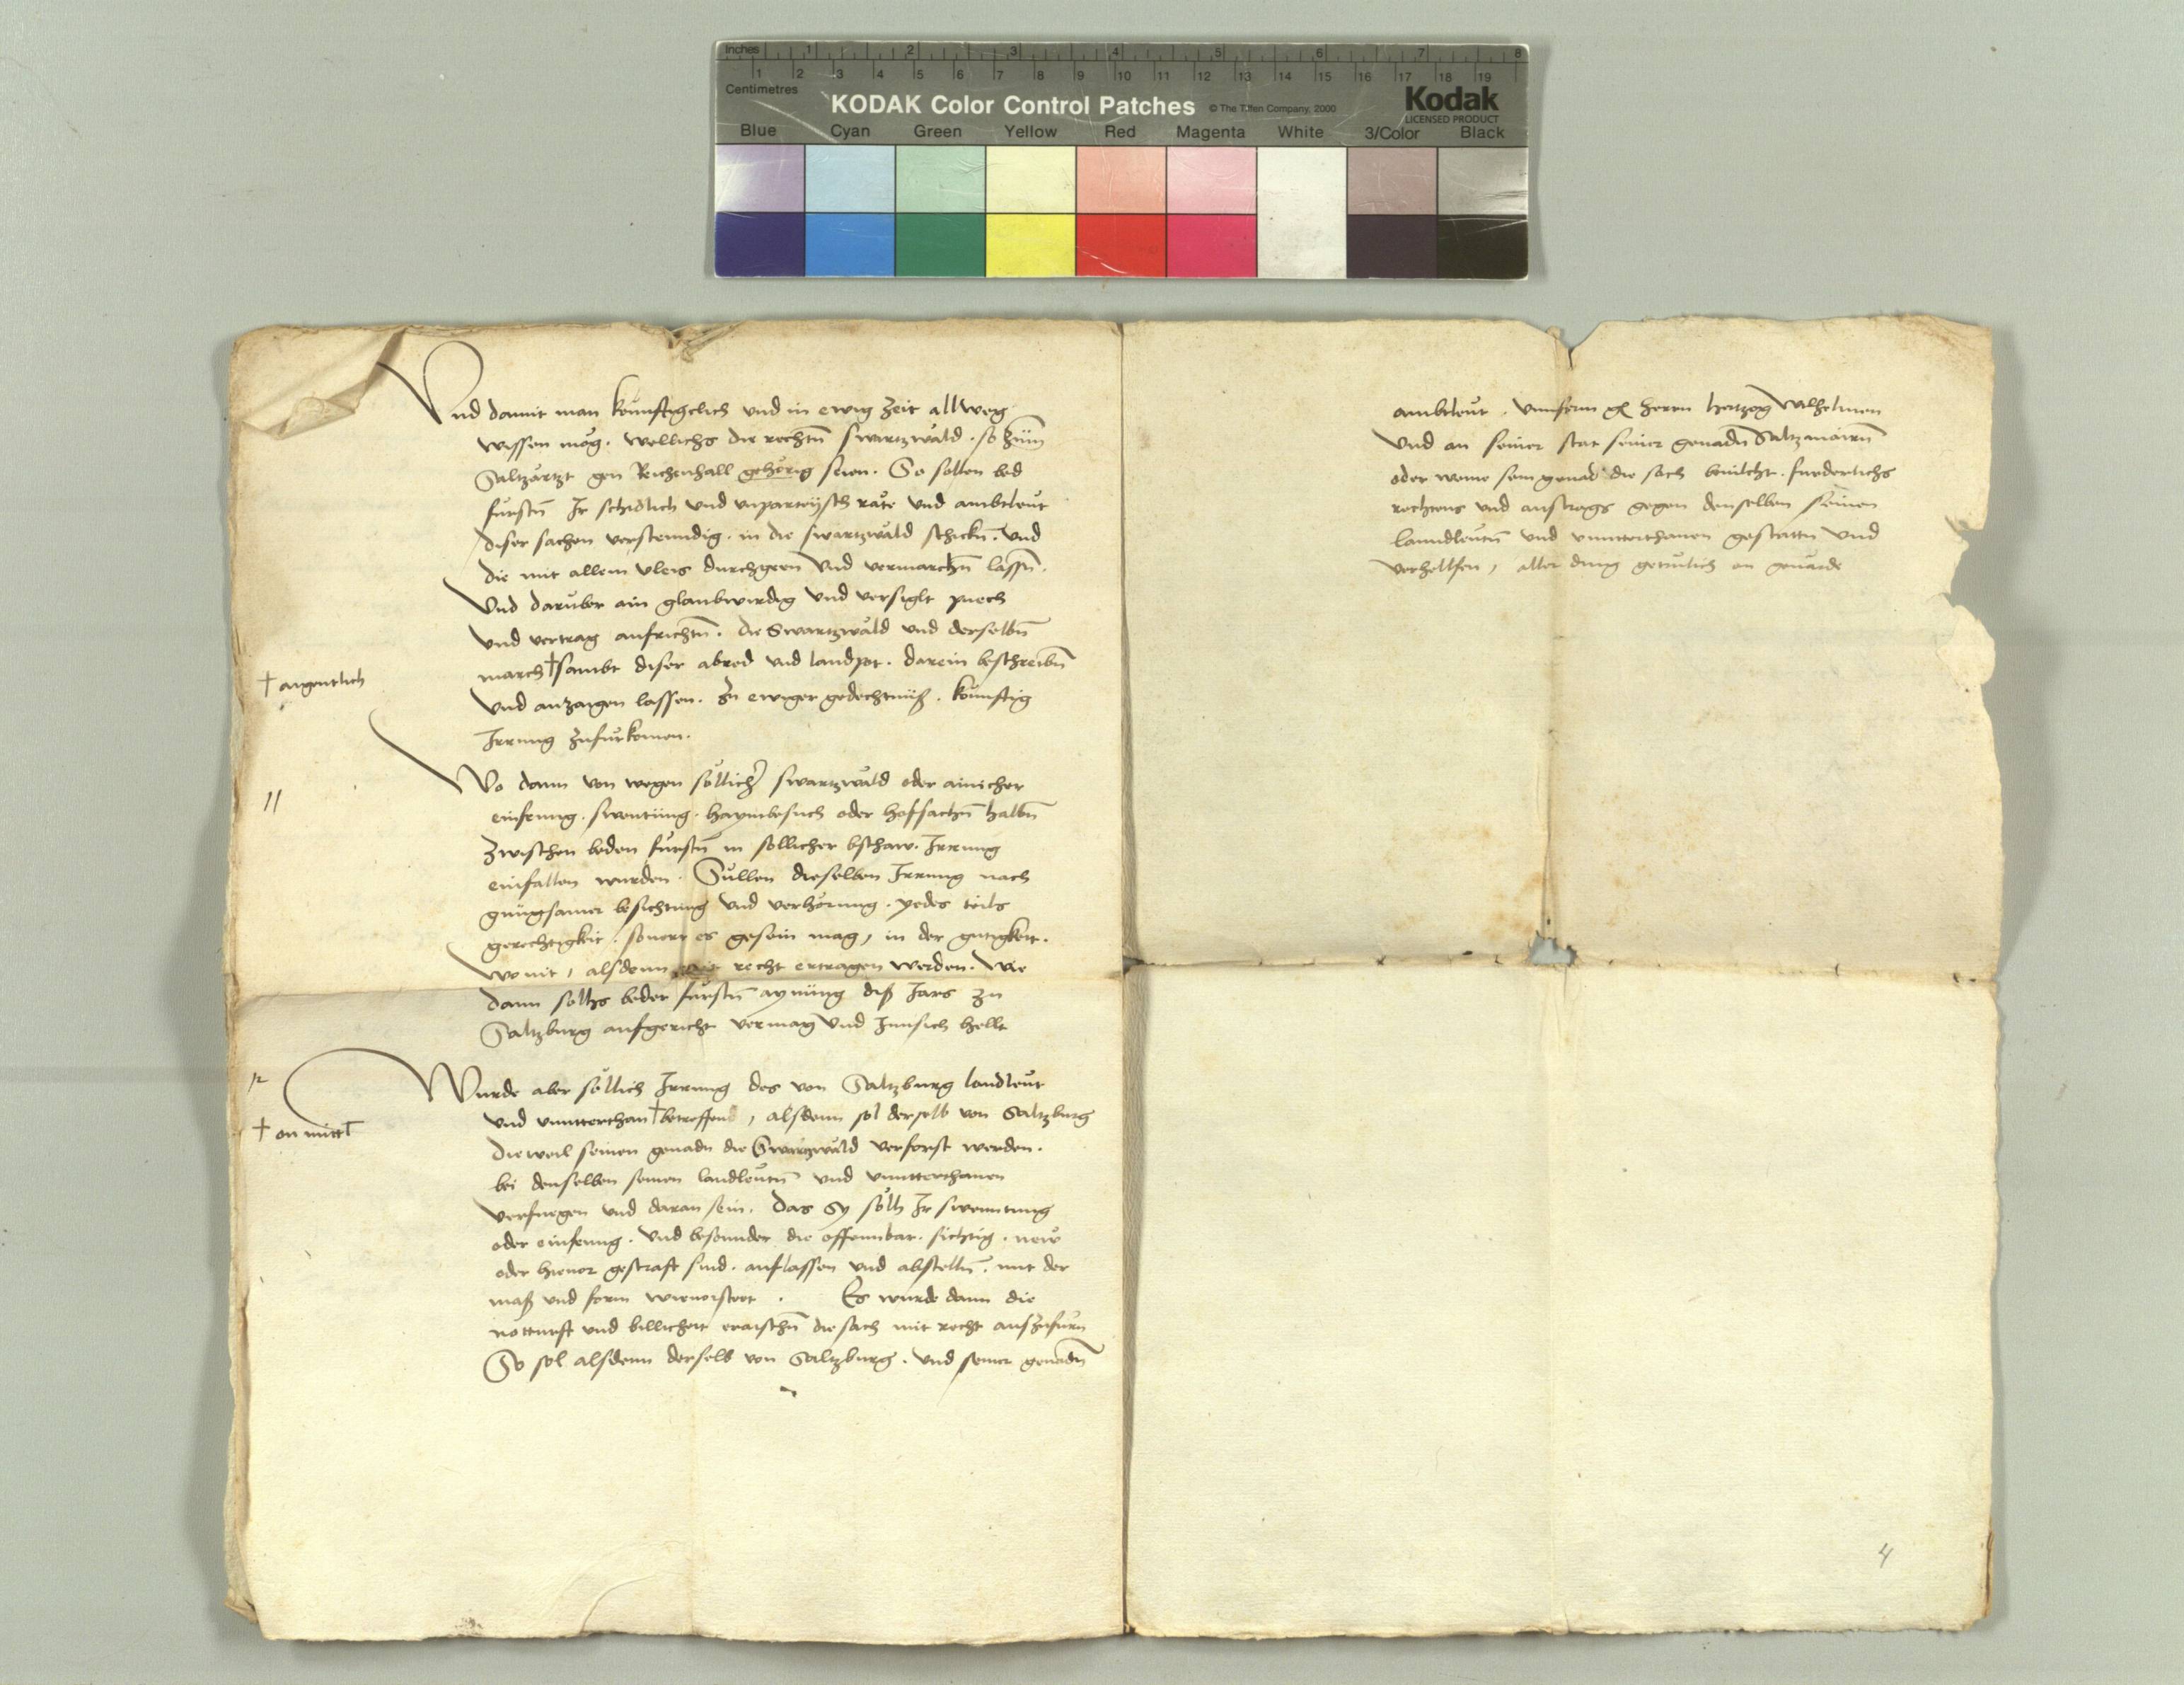 Inches 1 2 3 4 5 6 7 8
1 2 3 4 5 6 7 8 9 10 11 12 13 14 15 16 17 18 19
Centimetres
KODAK Color Control Patches © The Tiffen Company, 2000 Kodak
LICENSED PRODUCT
Blue Cyan Green Yellow Red Magenta White 3/Color Black
Vnd damit man kůnftigclich vnd in ewig Zeit allweg
wissen mög. wellichs die rechtn̄ swartzwäld. so zum
Saltzärtzt gen Reichenhall gehörig seien. So sollen bed
fürstn̄ Ir schidlich vnd vnparteysch räte vnd ambtleut
diser sachen verstenndig. in die swartzwäld schickn̄. vnd
die mit allem vleis durchgeen vnd vermarchn̄ lassn̄.
Vnd darüber ain glaubwirdig vnd versiglt puech
vnd vertrag aufrichtn̄. die Swartzwäld vnd derselbn̄
march † sambt diser abred vnd landpot. darein beschreibn̄
† aigentlich
vnd anzaigen lassen. Zu ewiger gedechtnüß. künftig
Irrung zufürkomen.
11
Wo dann von wegen söllicher swartzwäld oder ainicher
einfenng. swentung. haymbesuch oder hofsachn̄ halbn̄
Zwischen beden fürstn̄ in sollicher bschaw. Irrung
einfallen wurden. Sullen dieselben Irrung nach
gnugsamer besichtung vnd verhörung. yedes teils
gerechtigkeit. souerr es gesein mag, in der gutigkeit.
Wo nit, alsdenn mit recht ertragen werden. Wie
dann solhs beder fürstn̄ aynung diß Jars zu
Saltzburg aufgericht vermag vnd Innsich hellt
12
Wurde aber söllich Irrung des von Saltzburg landleut
vnd vnntterthan † betreffend, alsdenn sol derselb von Saltzburg
† on mittl
dieweil seinen genadn die Swartzwäld verforst werden.
bei denselben seinen landleutn̄ vnd vnntterthanen
verfuegen vnd daran sein. das Sy sölh Ir swenntung
oder einfenng. vnd besonnder die offennbar. sichtig. new
oder hieuor gestraft sind. auflassen vnd abstelln̄. mit der
maß vnd form wieuorsteet. Es wurde dann die
notturft vnd billicheit eraischn̄ die sach mit recht auszufürn
So sol alsdenn derselb von Saltzburg. vnd seiner genadn̄
ambtleut. vnnserm gl herrn hertzog Wilhelmen
vnd an seiner stat seiner genadn̄ Saltzmairn̄
oder weme sein genad die sach beuilcht. furderlichs
rechtens vnd austrags gegen denselben seinen
lanndleutn̄ vnd vnntterthanen gestattn vnd
verhellfen, aller ding getrulich on geuärde
4